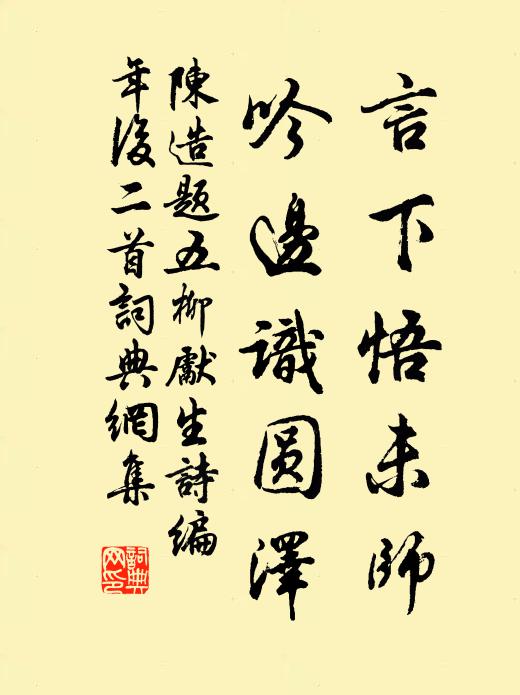 言下悟未師
吟邊識圆澤
陳造題五柳獻生詩编
年後二首詞典網集
詞典
网印